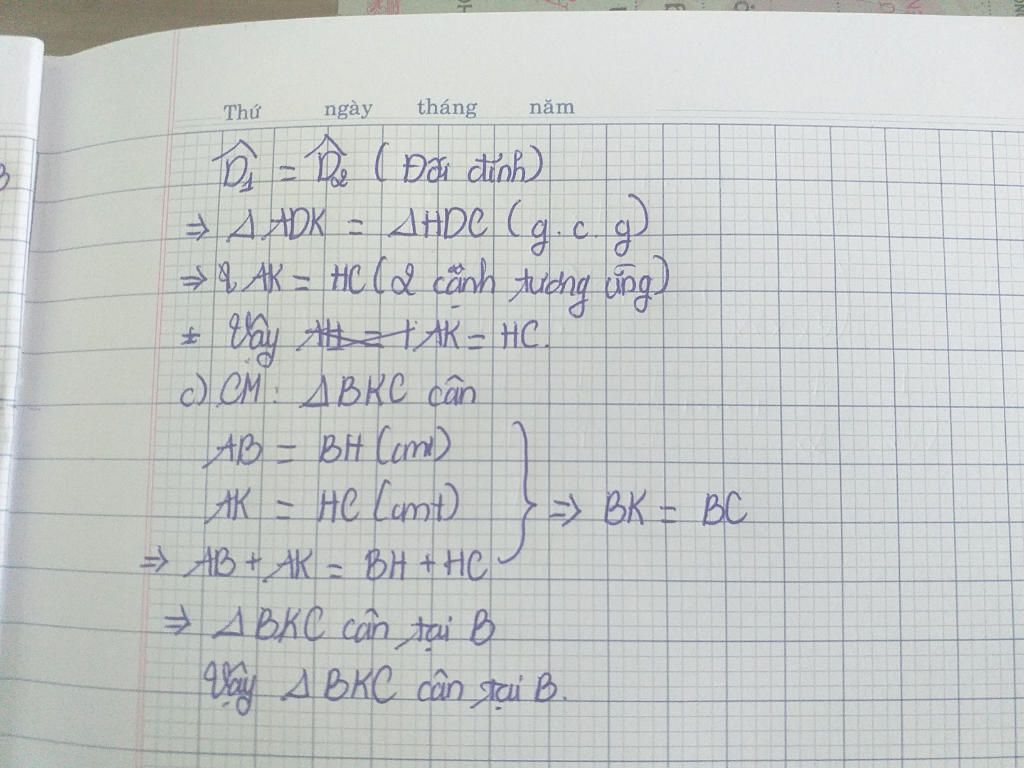 Thứ ngày tháng năm
D̂₁ = D̂₂ ( Đối đỉnh)
⇒ Δ ADK = ΔHDC ( g. c. g)
⇒ AK = HC (2 cạnh tương ứng)
+ Vậy AK = HC.
c) CM: ΔBKC cân
AB = BH (cmt)
AK = HC (cmt) } ⇒ BK = BC
⇒ AB + AK = BH + HC
⇒ ΔBKC cân tại B
Vậy ΔBKC cân tại B.